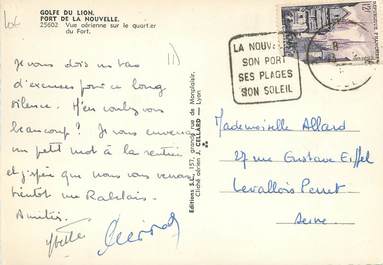 GOLFE DU LION.
PORT DE LA NOUVELLE.
25602 Vue aérienne sur le quartier
du Port.
Je vous dois un tas
d'excuses pour ce long
silence. M'en voulez vous
beaucoup ? Je vous enverrai
un petit mot à la rentrée
et j'espère que nous vous verrons
bientôt
Amitiés.
Yvette
Editions S.L., 157, grande rue de Monplaisir.
Cliché aérien J. CELLARD — Lyon
LA NOUVELLE
SON PORT
SES PLAGES
SON SOLEIL
12F
Mademoiselle Allard
27 rue Gustave Eiffel
Levallois Perret
Seine